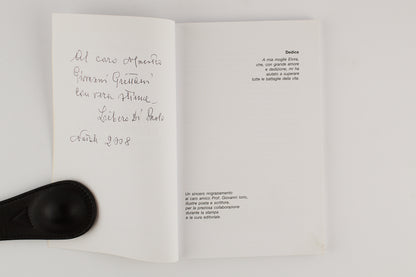 Al caro Maestro
Giovanni
con vera stima
Libero Di Paolo
2008
Dedica
A mia moglie Elvira,
che, con grande amore
e dedizione, mi ha
aiutato a superare
tutte le battaglie della vita.
Un sincero ringraziamento
al caro amico Prof. Giovanni Iorio,
illustre poeta e scrittore,
per la preziosa collaborazione
durante la stampa
e la cura editoriale.